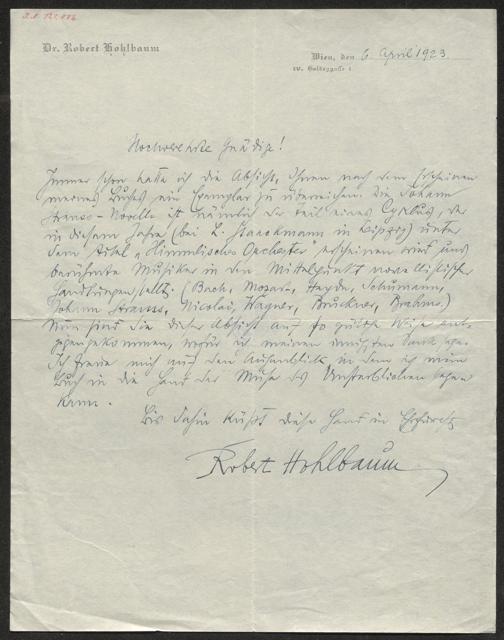 Dr. Robert Hohlbaum
Wien, den 6. April 1923
IV.
Hochverehrte Gnädige!
Immer schon hatte ich die Absicht, Ihnen nach dem Erscheinen
meines Buches ein Exemplar zu überreichen. Die Johann
Strauss-Novelle ist nämlich der Teil eines Cyklus, der
in diesem Jahre (bei L. Staackmann in Leipzig) unter
dem Titel „Himmlisches Orchester" erscheinen wird und
berühmte Musiker in den Mittelpunkt novellistischer
Handlungen stellt. (Bach, Mozart, Haydn, Schumann,
Johann Strauss, Nicolai, Wagner, Bruckner, Brahms.)
Nun sind Sie dieser Absicht auf so gütige Weise ent-
gegengekommen, wofür ich meinen innigsten Dank sage.
Ich freue mich auf den Augenblick in dem ich mein
Buch in die Hand der Muse des Unsterblichen legen
kann.
Bis dahin küßt diese Hand in Ehrfurcht
Robert Hohlbaum